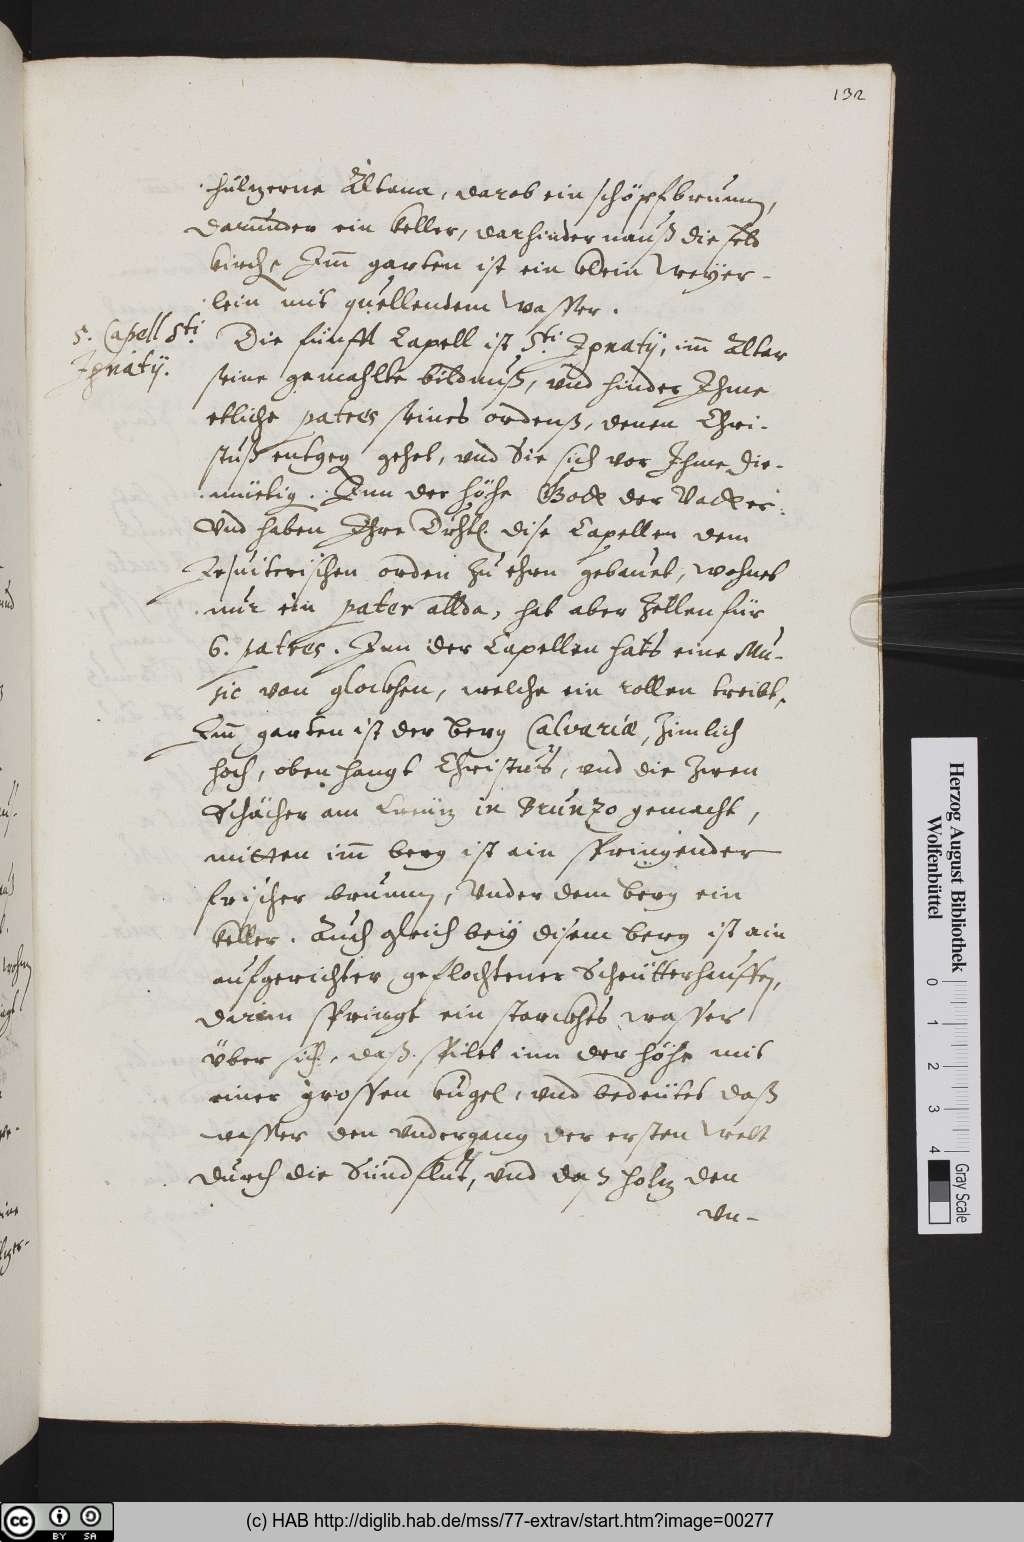 132
hültzerne Altana, darob ein schöpfbrunn,
darunder ein keller, darhinder nauß die feld
kirche Jm̄ garten ist ein klein Weyer-
lein mit quellendem Wasser.
5. Capell Sti
Jgnatÿ.
Die fünfft Capell ist Sti Jgnatÿ, im̄ Altar
seine gemahlte bildnuß, vnd hinder Jhme
etliche patres seines ordenß, denen Chri-
stuß entgeg gehet, vnd Sie sich vor Jhme die-
müetig. Jnn der höhe Gott der Vatter:
Vnd haben Jhre Drhl. dise Capellen dem
Jesuiterischen orden zu ehrn gebauet, wohnet
nur ein pater allda, hat aber zellen für
6. patres. Jnn der Capellen hats eine Mu-
sic von glockhen, welche ein rollen treibt,
Jm̄ garten ist der berg Calvariæ, zimlich
hoch, oben hangt Christus, vnd die zwen
Schächer am Creütz in Brunzo gemacht,
mitten im̄ berg ist ain springender
frischer brunn, Vnder dem berg ein
keller. Auch gleich beÿ disem berg ist ain
aufgerichter geflochtener Scheütterhauffen,
darein springt ein starckhes wasser
über sich, daß spilet inn der höhe mit
einer grossen kugel, vnd bedeütet daß
wasser den vndergang der ersten Welt
durch die Sündflut, vnd daß holtz den
vn-
Herzog August Bibliothek
Wolfenbüttel
0 1 2 3 4
Gray Scale
cc BY SA
(c) HAB http://diglib.hab.de/mss/77-extrav/start.htm?image=00277